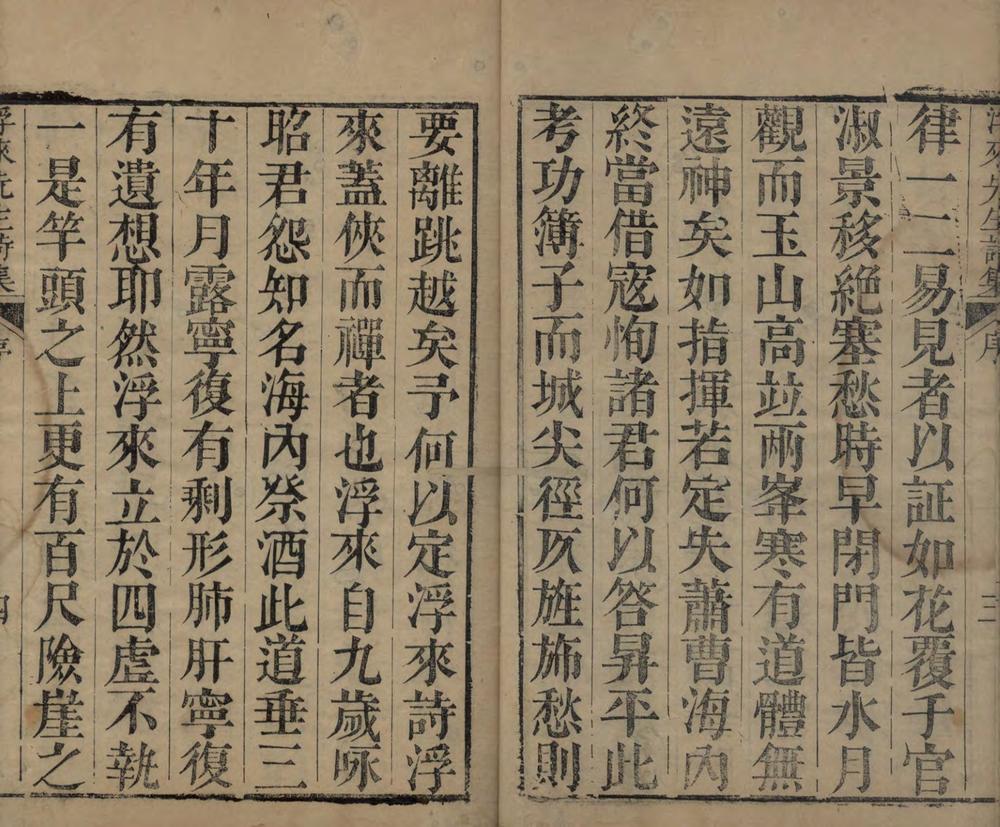 浮來先生詩集 序 三
律一二易見者以証如花覆千官
淑景移絶塞愁時早閉門皆水月
觀而玉山高竝兩峯寒有道體無
遠神矣如指揮若定失蕭曹海内
終當借寇恂諸君何以答昇平此
考功簿子而城尖徑仄旌斾愁則
要離跳越矣予何以定浮來詩浮
來蓋俠而禪者也浮來自九歲咏
昭君怨知名海内祭酒此道垂三
十年月露寧復有剩形肺肝寧復
有遺想耶然浮來立於四虛不執
一是竿頭之上更有百尺險崖之
浮來先生詩集 序 四